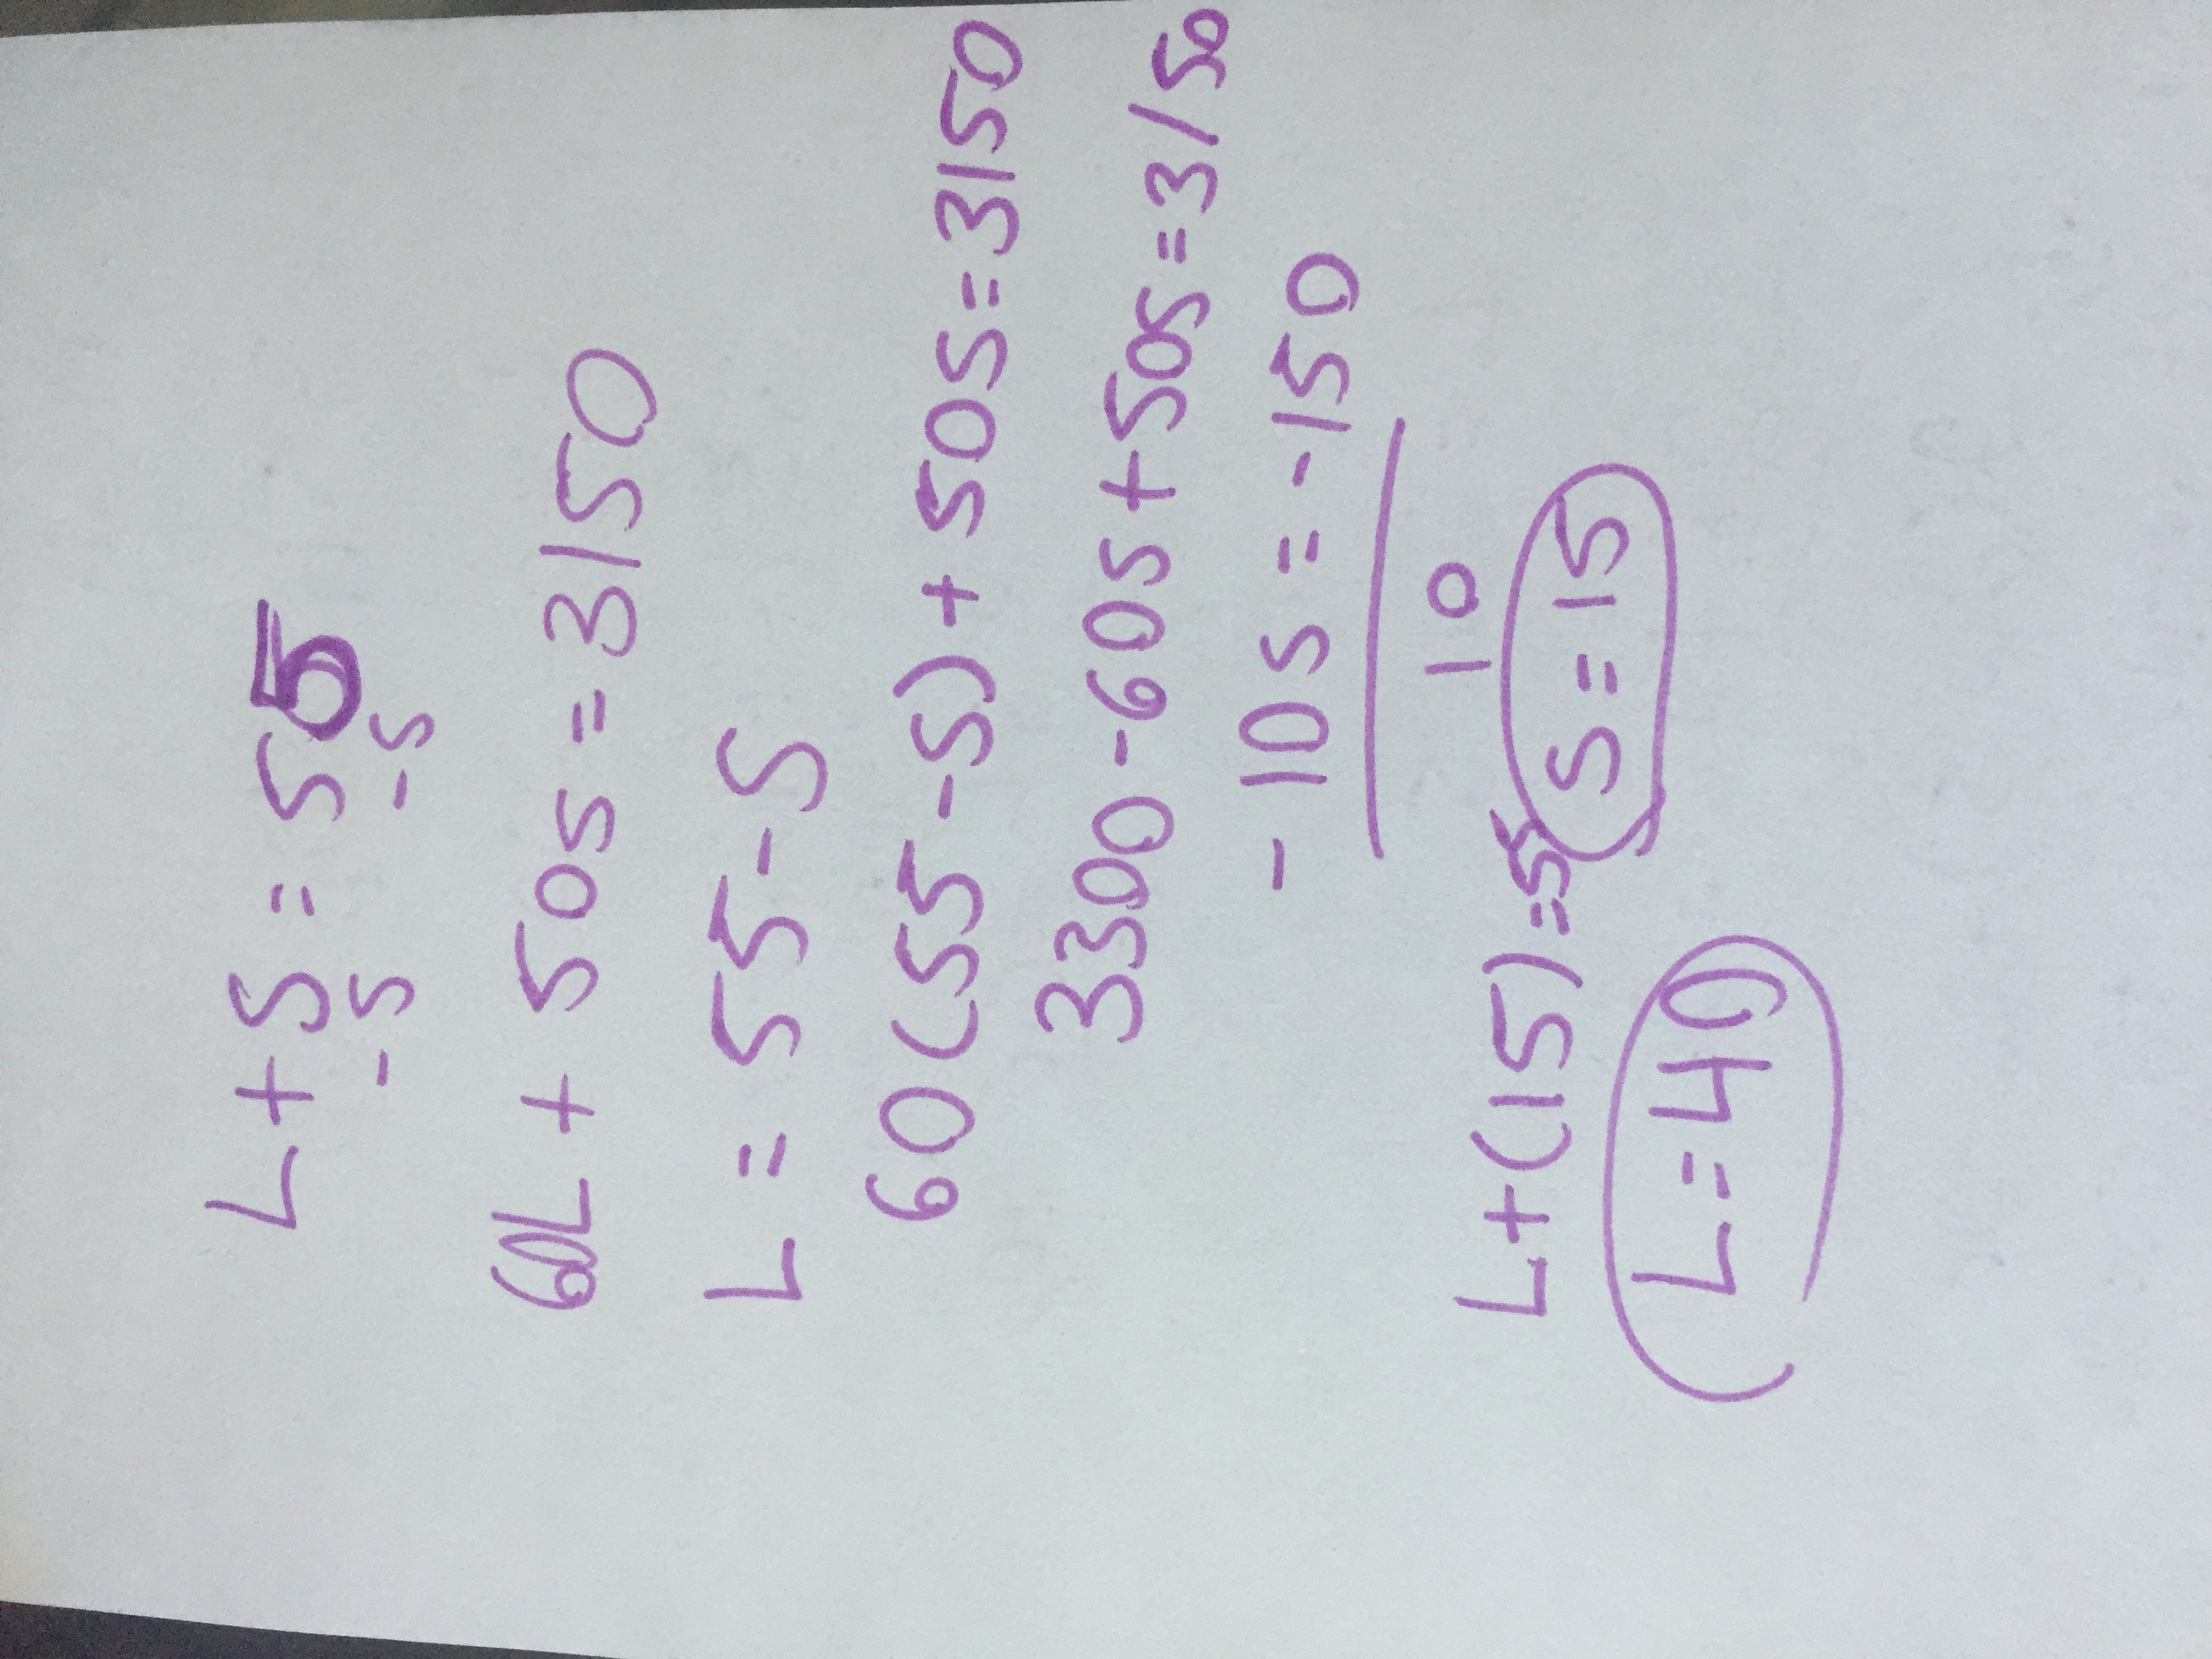 L + S = 55
-S -S
60L + 50S = 3150
L = 55 - S
60(55-S) + 50S = 3150
3300 - 60S + 50S = 3150
-10S = -150
10
S = 15
L + (15) = 55
L = 40